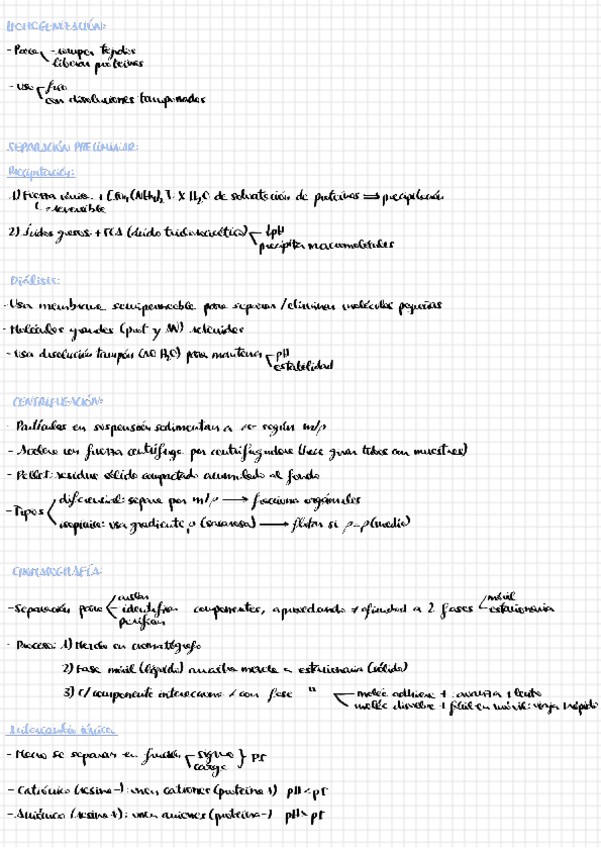 HOMOGENEIZACIÓN:
- Para - romper tejidos
liberar proteínas
- Uso frío
con disoluciones tamponadas
SEPARACIÓN PRELIMINAR:
Precipitación:
1) Fuerza iónica: + [Sm, (NH4)2]: X H2O de solvatación de proteínas ⟹ precipitación
reversible
2) Ácidos grasos + TCA (ácido tricloroacético) ↓pH
precipita macromoléculas
Diálisis:
- Usa membrana semipermeable para separar / eliminar moléculas pequeñas
- Moléculas grandes (prot y AN) retenidos
- Usa disolución tampón (NO H2O) para mantener pH
estabilidad
CENTRIFUGACIÓN:
- Partículas en suspensión sedimentan a ≠ según m/ρ
- Acelera con fuerza centrífuga por centrifugadora (hace girar tubos con muestras)
- Pellet: residuo sólido compactado acumulado al fondo
- Tipos diferencial: separa por m/ρ ⟶ fracciona orgánulos
isopícnica: usa gradiente ρ (sacarosa) ⟶ flotan si ρ=ρ(medio)
CROMATOGRAFÍA:
aislar
- Separación para identificar componentes, aprovechando ≠ afinidad a 2 fases móvil
purificar estacionaria
- Proceso: 1) Mezcla en cromatógrafo
2) Fase móvil (líquido) arrastra mezcla a estacionaria (sólido)
3) C/ componente interacciona ≠ con fase " molec adhiere + : avanza + lento
molec disuelve + fácil en móvil: viaja + rápido
Intercambio iónico
- Macro se separan en función signo
carga } PI
- Catiónico (resina -): unen cationes (proteína +) pH < pI
- Aniónico (resina +): unen aniones (proteína -) pH > pI